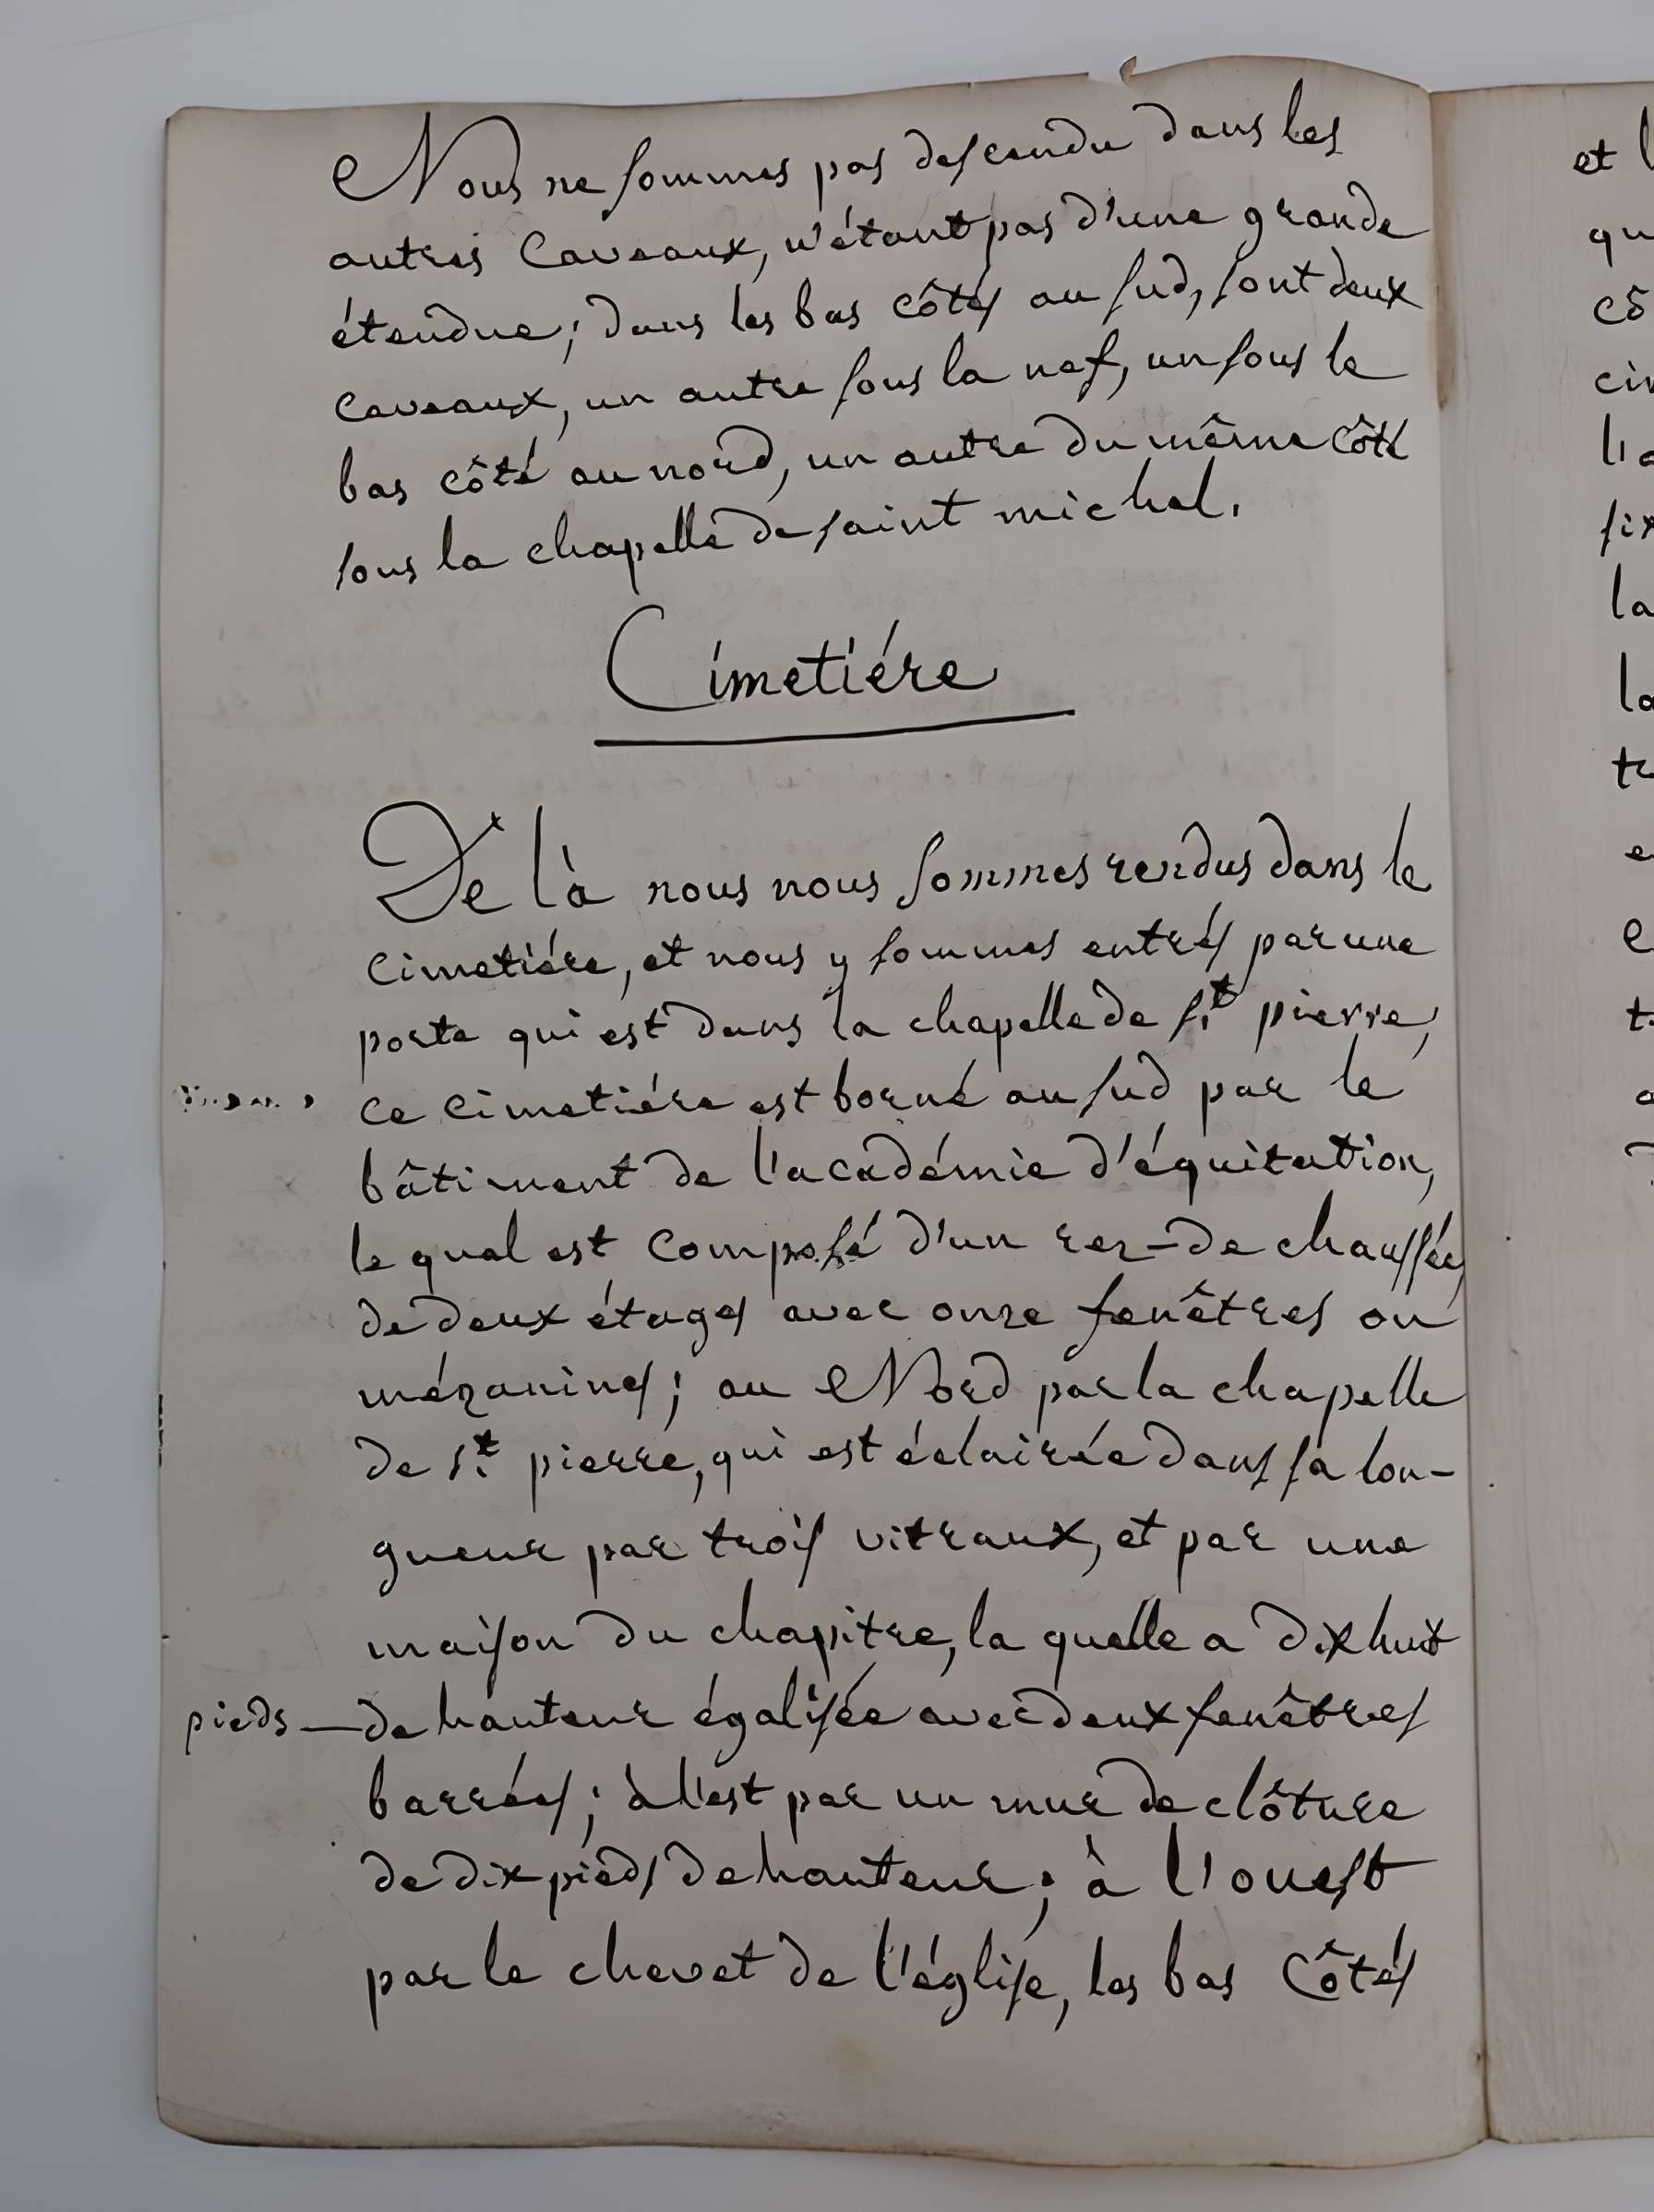 Nous ne sommes pas descendu dans les
autres Caveaux, n'étant pas d'une grande
étendue; dans les bas côtés au sud, sont deux
Caveaux, un autre sous la nef, un sous le
bas côté au nord, un autre du même côté
sous la chapelle de saint michel.
Cimetiére
De là nous nous sommes rendus dans le
Cimetiére, et nous y sommes entrés par une
porte qui est dans la chapelle de st. pierre,
ce Cimetiére est borné au sud par le
bâtiment de l'académie d'équitation,
le quel est Composé d'un rez-de chaussée,
de deux étages avec onze fenêtres ou
mézanines; au Nord par la chapelle
de st. pierre, qui est éclairée dans sa lon-
gueur par trois vitraux, et par une
maison du chapitre, la quelle a dix huit
pieds — de hauteur égalisée avec deux fenêtres
barrées; à l'est par un mur de clôture
de dix pieds de hauteur; à l'ouest
par le chevet de l'église, les bas Côtés
et
qu
cô
la